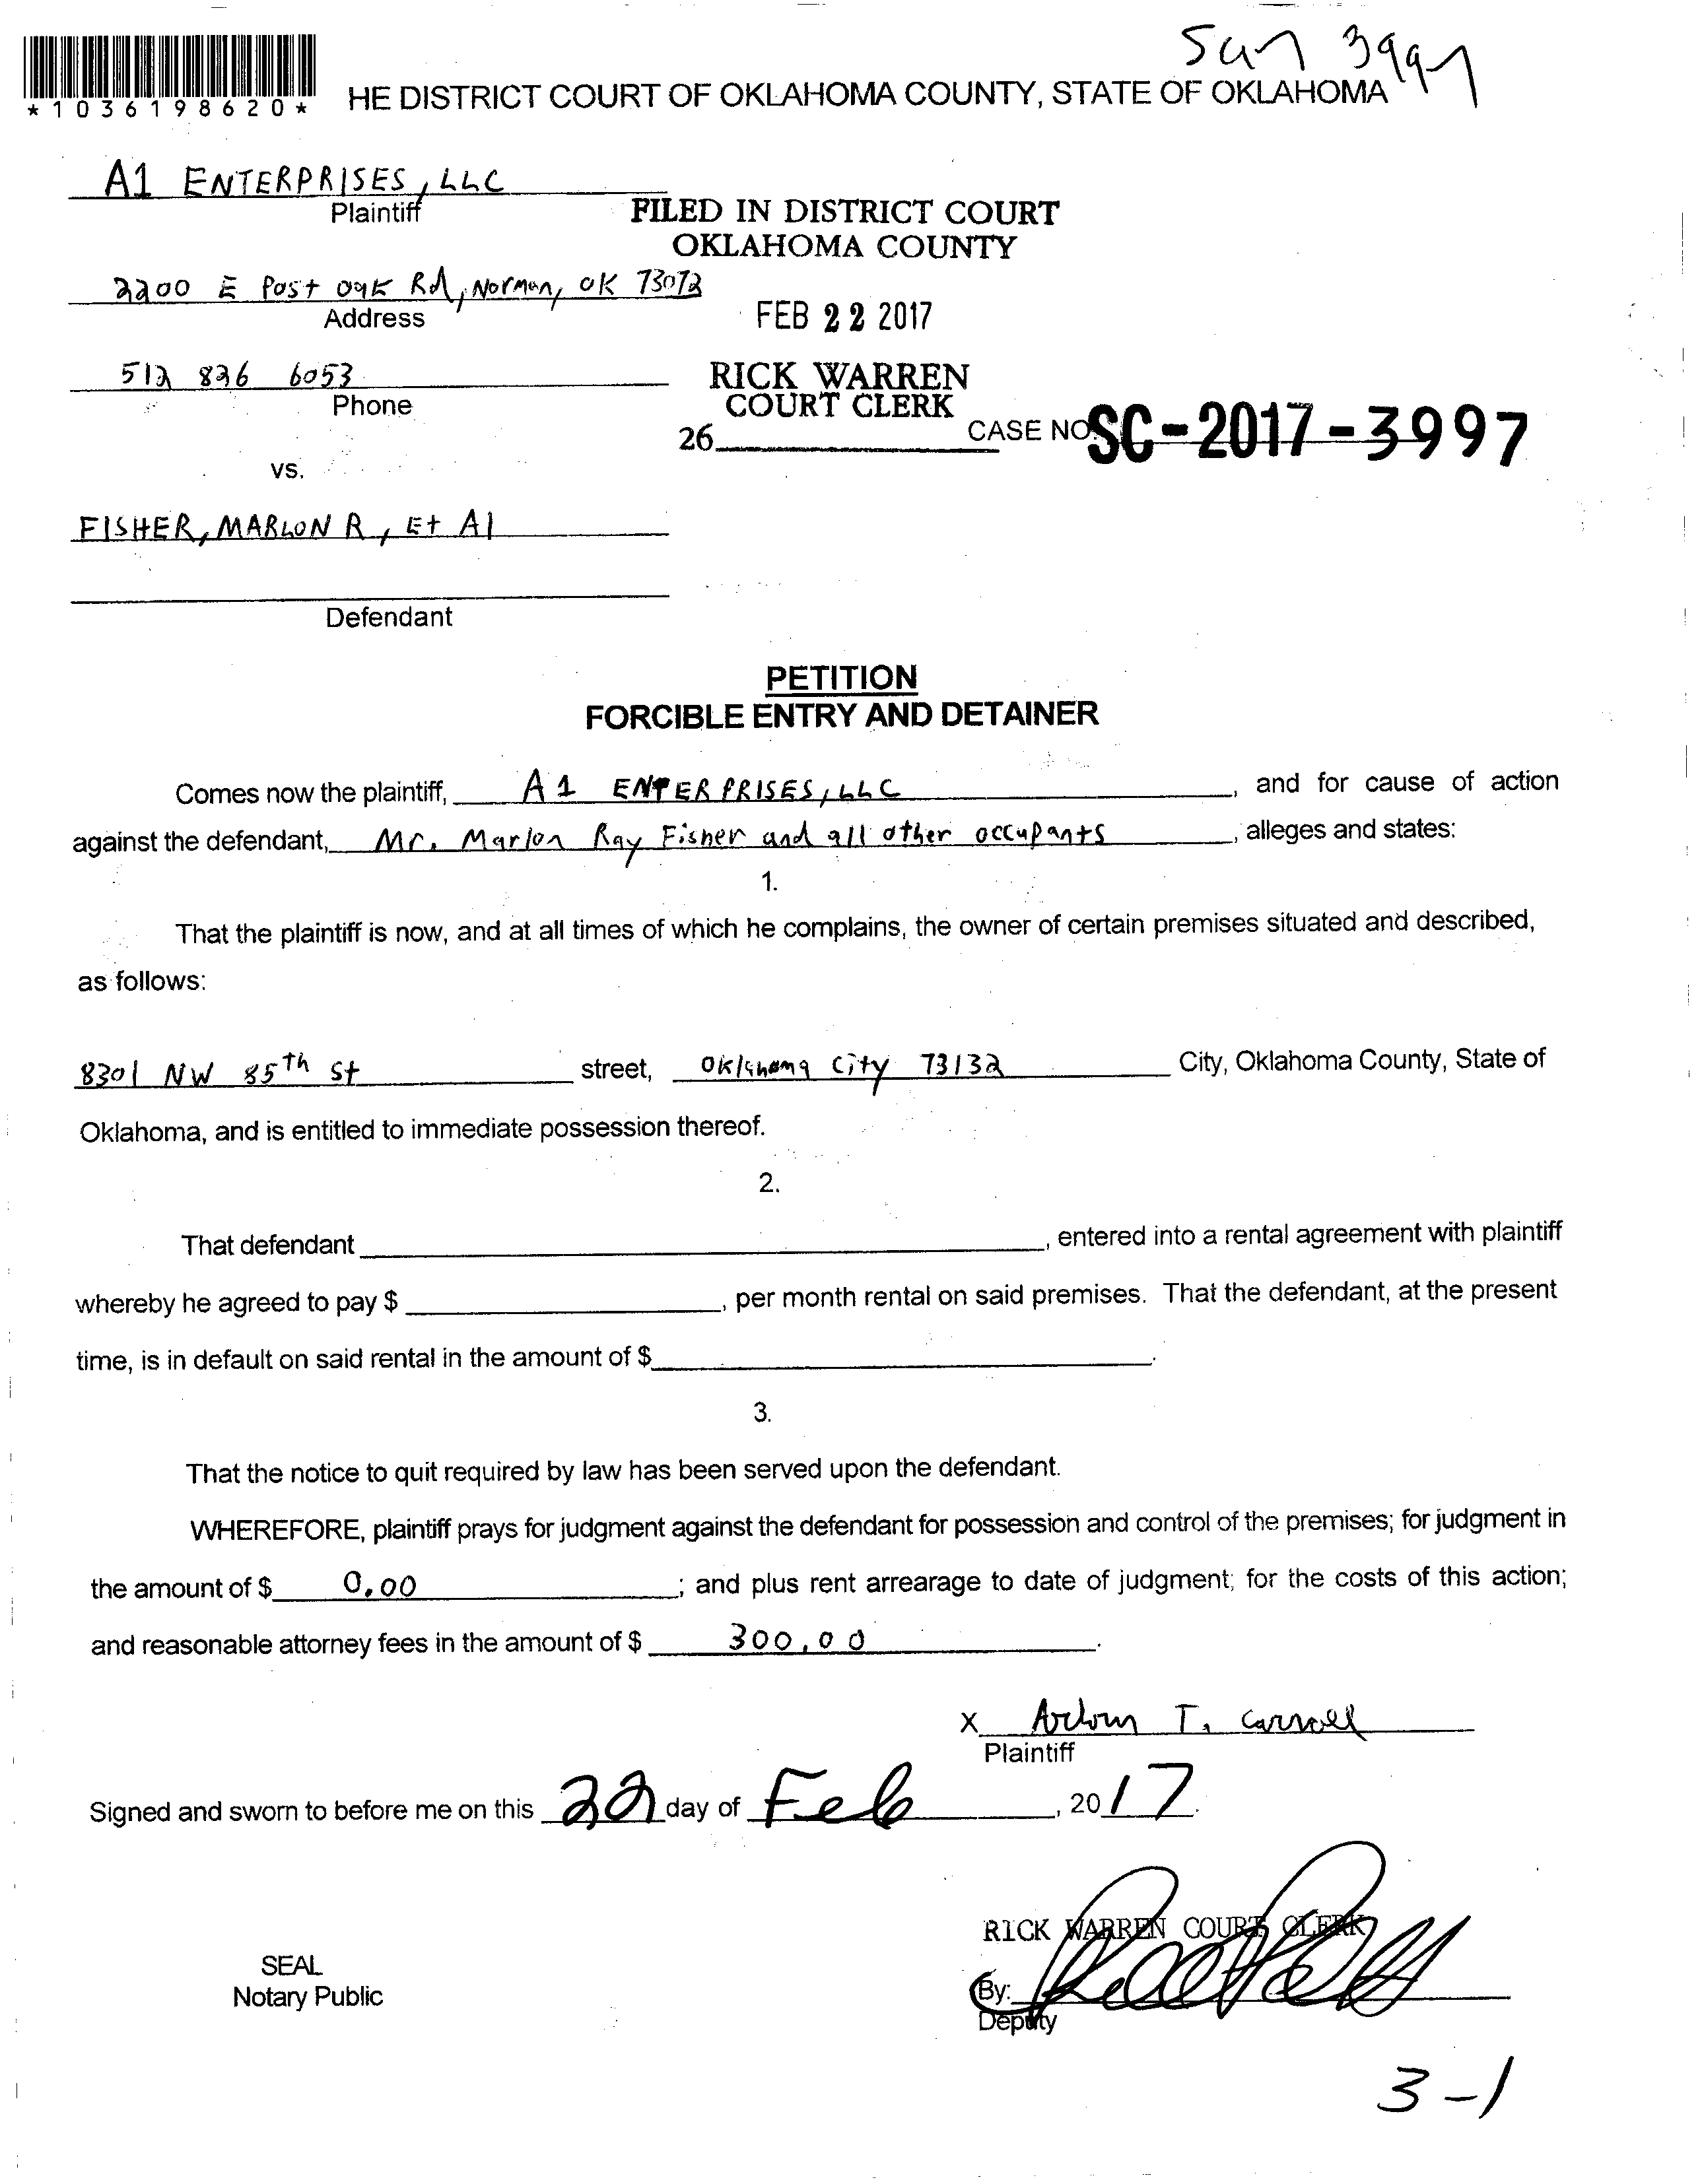 *1036198620*
HE DISTRICT COURT OF OKLAHOMA COUNTY, STATE OF OKLAHOMA
A1 ENTERPRISES, LLC
Plaintiff
FILED IN DISTRICT COURT
OKLAHOMA COUNTY
2200 E Post Oak Rd, Norman, OK 73072
Address
FEB 22 2017
512 826 6053
Phone
RICK WARREN
COURT CLERK
26
CASE NO. SC-2017-3997
vs.
FISHER, MARLON R, Et Al
Defendant
PETITION
FORCIBLE ENTRY AND DETAINER
Comes now the plaintiff, A1 ENTERPRISES, LLC, and for cause of action
against the defendant, Mr. Marlon Ray Fisher and all other occupants, alleges and states:
1.
That the plaintiff is now, and at all times of which he complains, the owner of certain premises situated and described,
as follows:
8301 NW 85th St street, Oklahoma City 73132 City, Oklahoma County, State of
Oklahoma, and is entitled to immediate possession thereof.
2.
That defendant , entered into a rental agreement with plaintiff
whereby he agreed to pay $ , per month rental on said premises. That the defendant, at the present
time, is in default on said rental in the amount of $ .
3.
That the notice to quit required by law has been served upon the defendant.
WHEREFORE, plaintiff prays for judgment against the defendant for possession and control of the premises; for judgment in
the amount of $ 0.00 ; and plus rent arrearage to date of judgment; for the costs of this action;
and reasonable attorney fees in the amount of $ 300.00 .
X T. Carroll
Plaintiff
Signed and sworn to before me on this 22 day of Feb, 2017.
RICK WARREN COURT CLERK
SEAL
Notary Public
By:
Deputy
3-1